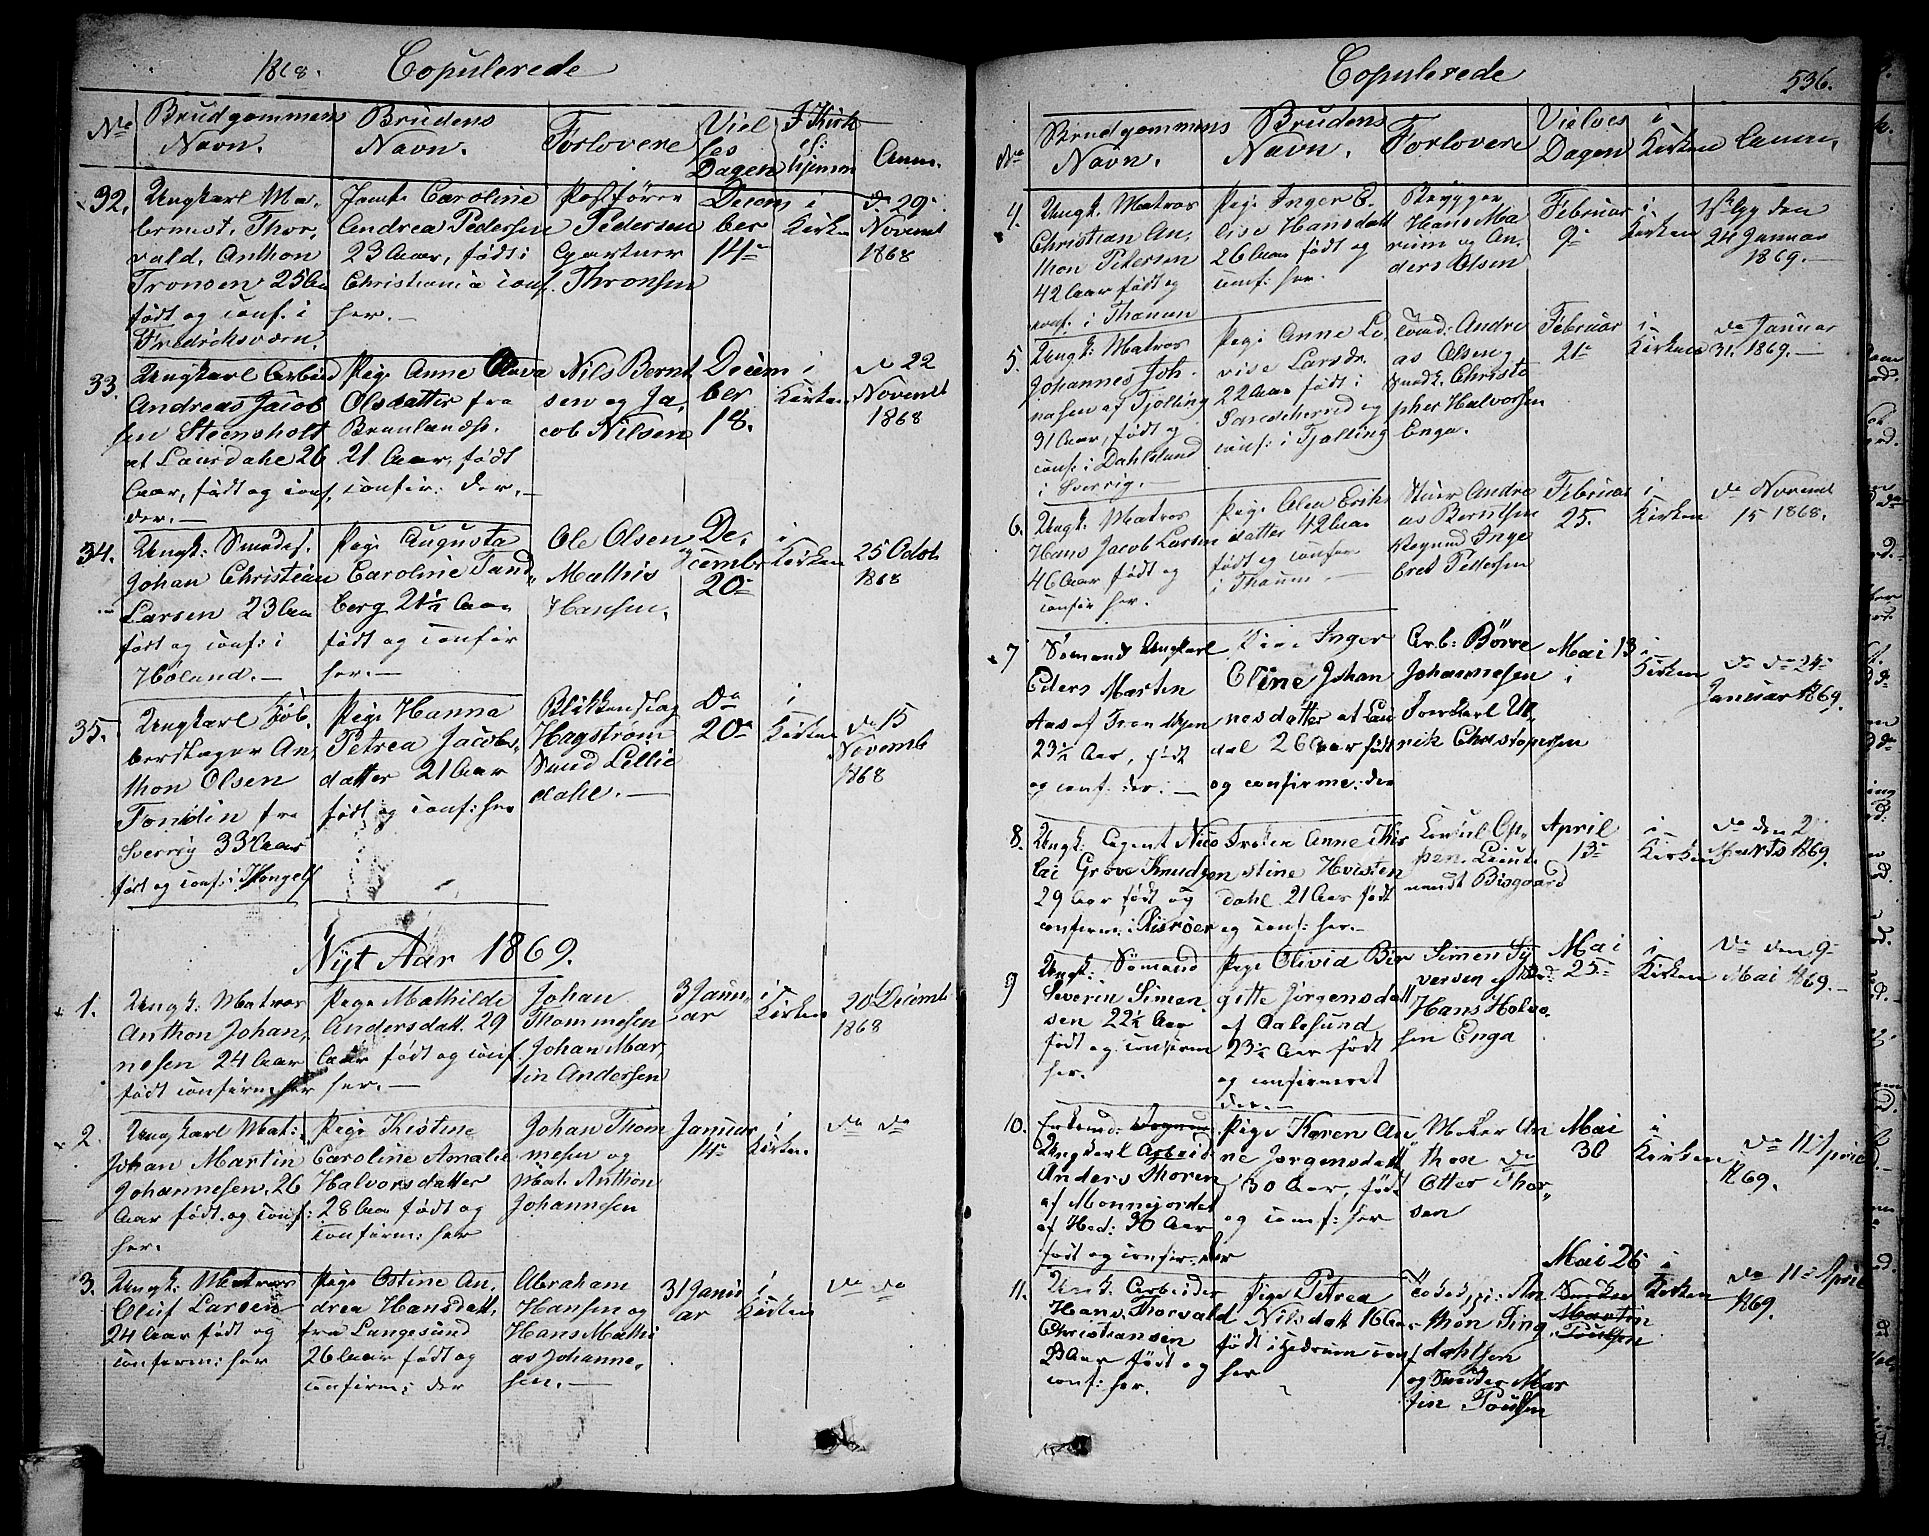 1868. Copulerede
No
Brudgommens Navn.
Brudens Navn.
Forlovere
Viel ses Dagen
I Kirk el: hjemm
Anm.
32.
Ungkarl Ma,
Thor,
vald, Anthon
Tronsen 25 Aar
født og conf. i
Fredriksværn.
Jomfr Caroline
Andrea Pedersen
23 Aar, født i
Christiania conf.
her.
Postfører
Pedersen
Gartner
Thronsen
Decem
ber
14de
i
Kirken
d. 29
Novemb
1868
33.
Ungkarl Arbeid
Andreas Jacob
sen Steensholt
af Laurdahe 26
Aar, født og conf.
der.
Pige Anne Olava
Olsdatter fra
21 Aar, født
confir: der.
Nils Bernt
sen og Ja,
cob Nilsen
Decem
ber
18.
i
Kirken
d 22
Novemb
1868
34.
Ungk: Smedes.
Johan Christian
Larsen 23 Aar
født og conf: i
Høland.
Pige Augusta
Caroline Tand
berg 21½ Aar
født og confir
her.
Ole Olsen
og
Mathis
Hansen.
De,
cembr
20de
i
Kirken
25 Octob
1868
35.
Ungkarl Kob,
berslager An,
thon Olsen
Fondin fra
Sverrig 33 Aar
født og conf: i Kongelf
Pige Hanna
Petrea Jacobs,
datter 21 Aar
født og conf: her
Blikkenslag
Hagstrøm
Smed Lillie
dahl.
Do
20de
i
Kirken
do 15
Novemb
1868
Nyt Aar 1869.
1.
Ungk: Matros
Anthon Johan,
nesen 24 Aar
født confirm: her
Pige Mathilde
Andersdatt. 29
Aar født og conf
her.
Johan
Thommesen
Johan Mar,
tin Andersen
3 Janu,
ar
i
Kirken
20 Decemb
1868
2.
Ungkarl Mat:
Johan Martin
Johannesen, 26
Aar født og conf:
her.
Pige Kistine
Caroline Amalie
Halvorsdatter
28 Aar født og
confirm: her
Johan Thom
mesen og
Mat. Anthon
Johannesen
Januar
14de
i
Kirken.
do do
3.
Ungk: Matros
Oluf Larsen
24 Aar født og
confirm: her
Pige Ostine An,
drea Hansdatt,
fra Langesund
26 Aar født og
confirm: der
Abraham
Hansen og
Hans Mathi
as Johanne,
sen.
31 Janu
ar
i
Kirken
do do
Copulerede
536.
No
Brudgommens Navn.
Brudens Navn.
Forlovere
Vielses Dagen
i Kirken
Anm.
4.
Ungk. Matros
Christian An,
thon Petersen
42 Aar født og
conf. i Thanum
Pige Inger E.
lise Hansdatt
26 Aar født og
conf: her.
Brygger
Hans Ma
rium og An,
ders Olsen
Februar
9de
i
Kirken
den
24 Januar
1869.
5.
Ungk: Matros
Johannes Joh
nasen af Tjølling
31 Aar, født og
conf: i Dahlsland
i Sverrig.
Pige Anne Lo
vise Larsdr.
22 Aar født i
Sandeherred og
conf: i Tjølling
Tømd: Andre
as Olsen og
Snedk. Christo
pher Halvorsen
Enga.
Februar
21de
i
Kirken
do Januar
31. 1869.
6.
Ungk: Matros
Hans Jacob Larsen
46 Aar født og
confir her.
Pige Alen Eriks
datter 42 Aar
født og confir
i Thanum.
Andre
as Berntsen
Inge
bret Pedersen
Februar
25.
i
Kirken
do Novemb
15 1868.
7
Sømand Ungkarl
Eders Martin
Aas af
23½ Aar, født
og conf: der.
Pige Inger
Eline Johan
nesdatter af Lau
dal 26 Aar født
og confirme: der
Arb: Børre
Johannesen
Ul,
rik Christopersen
Mai 13
i
i
Kirken
do do 24de
Januar 1869.
8.
Ungk: Agent Nico
lai Grove Knudsen
29 Aar født og
confirm: i Risøer
Frøken Anne Chir
stine Hvisten
dahl 21 Aar født
og conf: her.
Consul Op,
pen. Lieut
nandt Bisgaard
April
13de
i
Kirken
do den 2
Marts 1869.
9
Ungk: Sømand
Severin Simen
sen 22½ Aar
født og confirm
her.
Pige Olivia Bir
gitte Jørgensdatt
af Aalesund
23½ Aar født
og confirmeret
der.
Simen Sy
versen
Hans Holvo.
sen Enga
Mai
25de
i
Kirken
do den 9de
Mai 1869.
10.
Enkemd:
Ungkarl Arbeid
Anders Thoren
af Monnejordet
af Hed: 30 Aar
født og confir. der
Pige Karen An
ne Jørgensdatt
30 Aar, født
og conf: her
Maler An
thon
Otter Thor,
sen
Mai
30
i
Kirken
do 11te April
1869.
11.
Ungk. Arbeider
Hans Thorvald
Christiansen
23 Aar født og
conf: her.
Pige Petrea
Nilsdatt 16 Aar
født i Hedrum conf
her
An
thon Ting
dahlsen
og Smed Mar
tin Poulsen
Mai 26
Martin
Poulsen
i
Kirken
do 11te April
1869.